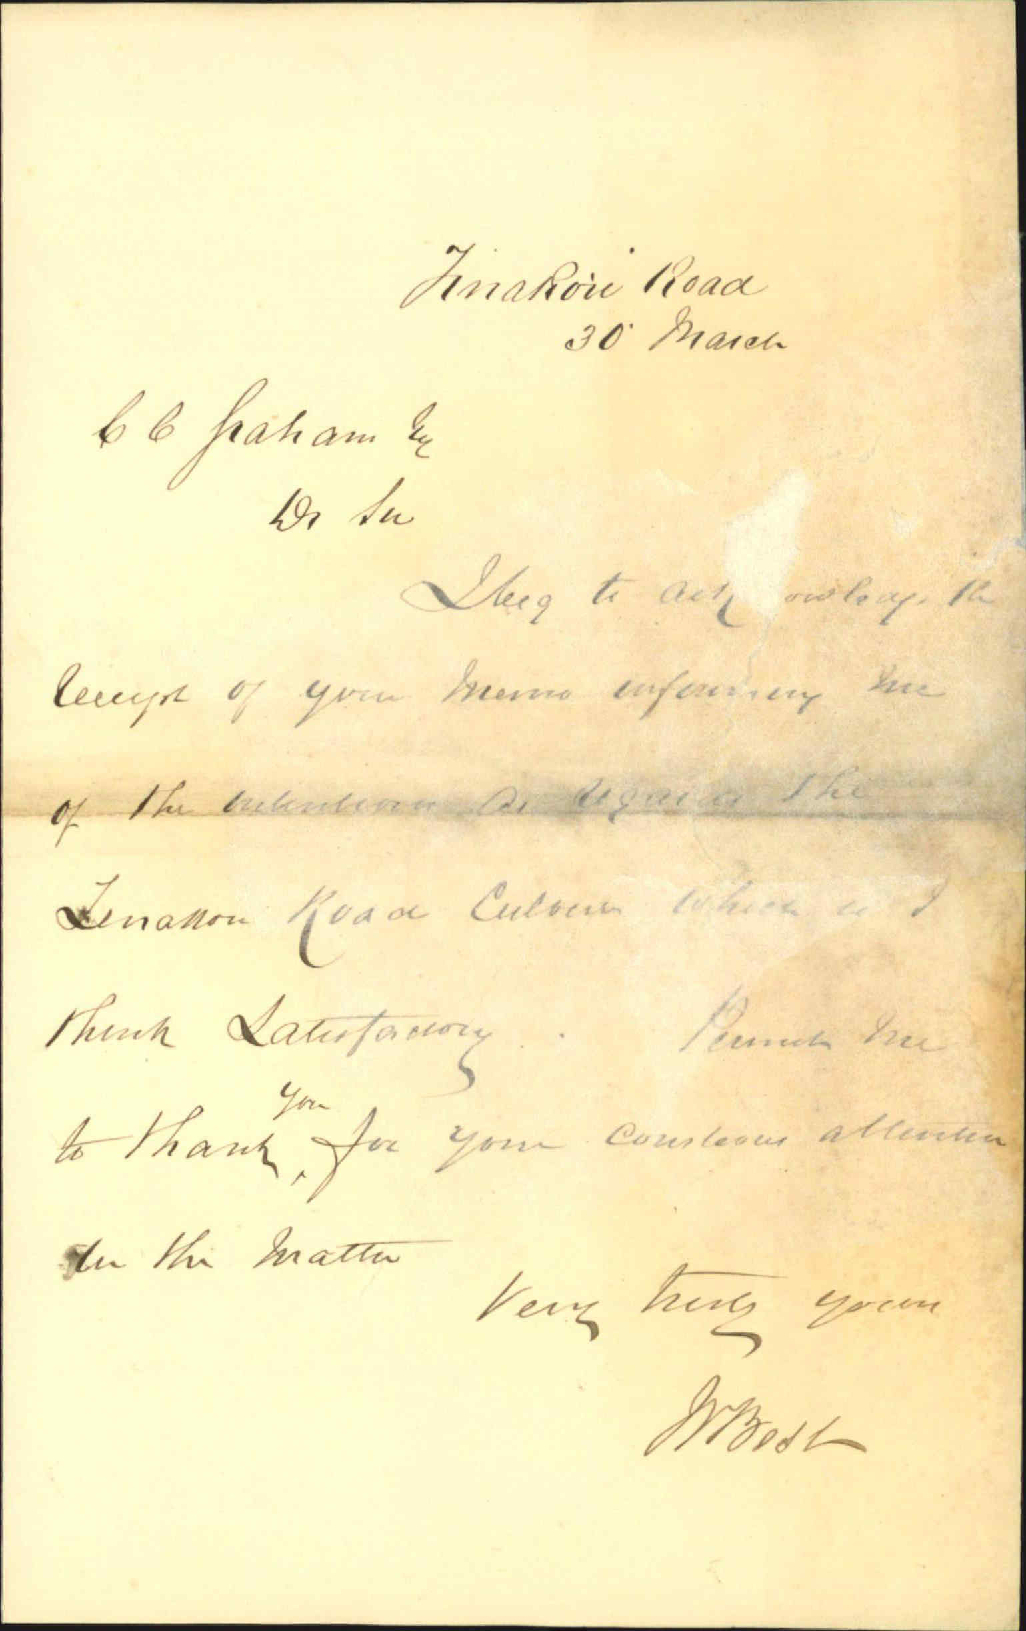 Tinakori Road
30 March
C C Graham Esq
Dr Sir
I beg to ack owledge the
receipt of your Memo informing me
of the intentions as regards the
Tinakori Road Culvert which is I
think Satisfactory. Permit me
you
to thank for your courteous attention
in the Matter
Very truly yours
W Best